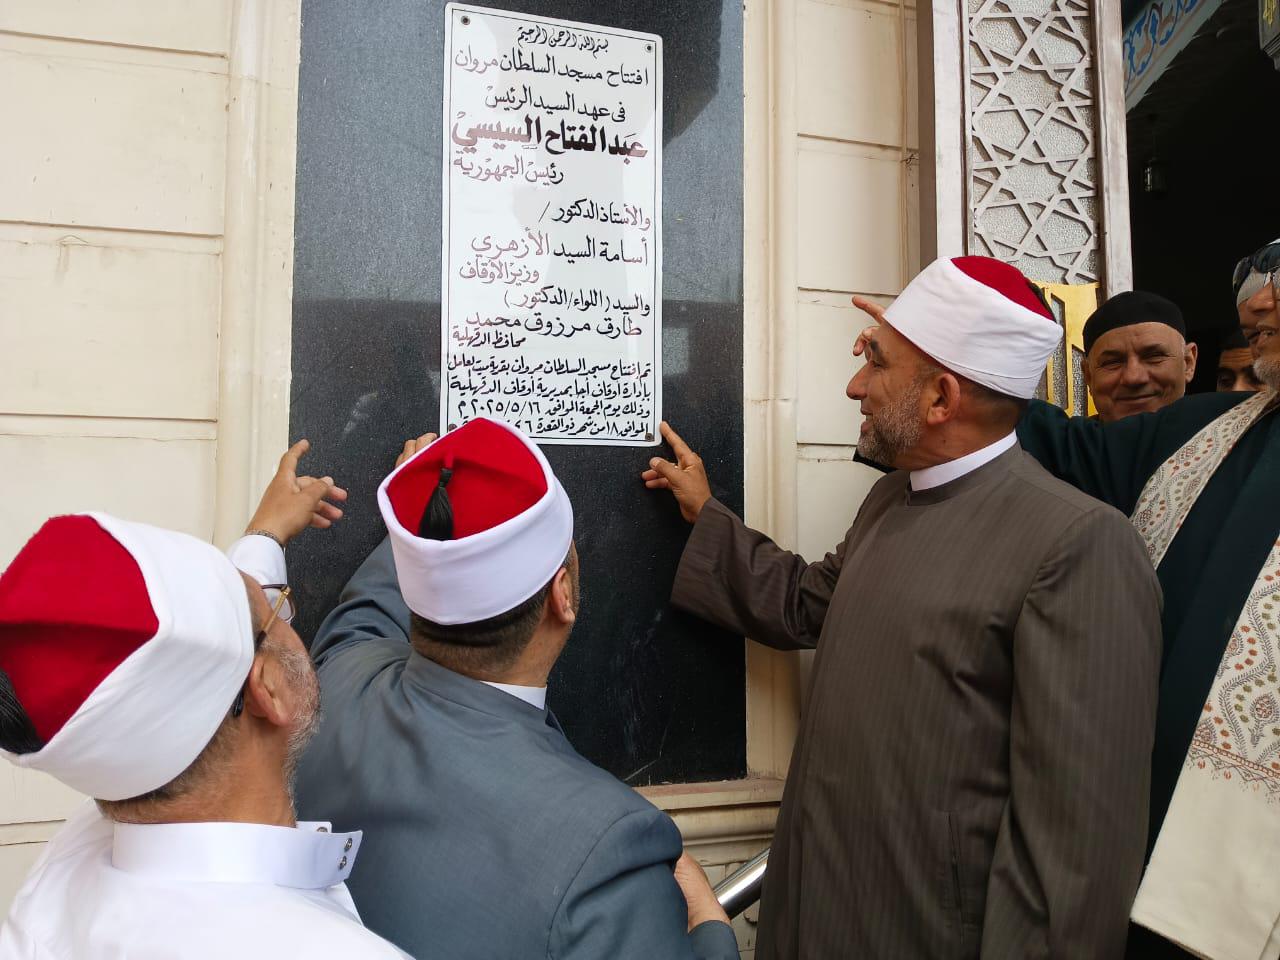 بسم الله الرحمن الرحيم
افتتاح مسجد السلطان مروان
فى عهد السيد الرئيس
عبد الفتاح السيسي
رئيس الجمهورية
والأستاذ الدكتور /
أسامة السيد الأزهري
وزير الأوقاف
والسيد ( اللواء/الدكتور )
طارق مرزوق محمد
محافظ الدقهلية
تم افتتاح مسجد السلطان مروان بقرية ميت العامل
بإدارة أوقاف أجا بمديرية أوقاف الدقهلية
وذلك يوم الجمعة الموافق ٢٠٢٥/٥/١٦ م
الموافق ١٨ من شهر ذو القعدة